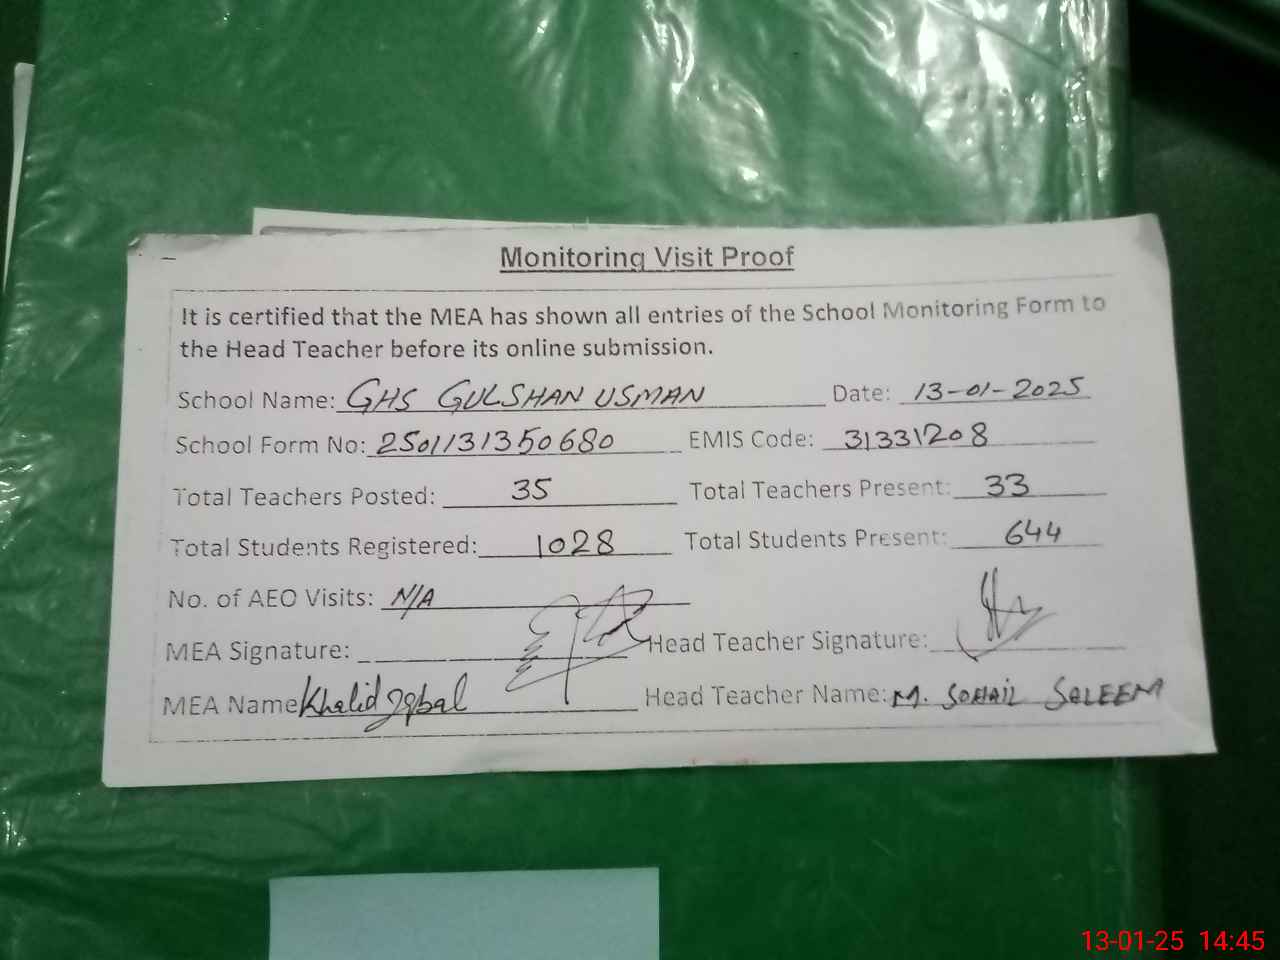 Monitoring Visit Proof
It is certified that the MEA has shown all entries of the School Monitoring Form to
the Head Teacher before its online submission.
School Name: GHS GULSHAN USMAN Date: 13-01-2025
School Form No: 2501131350680 EMIS Code: 31331208
Total Teachers Posted: 35 Total Teachers Present: 33
Total Students Registered: 1028 Total Students Present: 644
No. of AEO Visits: N/A
MEA Signature: Head Teacher Signature:
MEA Name Khalid Iqbal Head Teacher Name: M. SOHAIL SALEEM
13-01-25 14:45